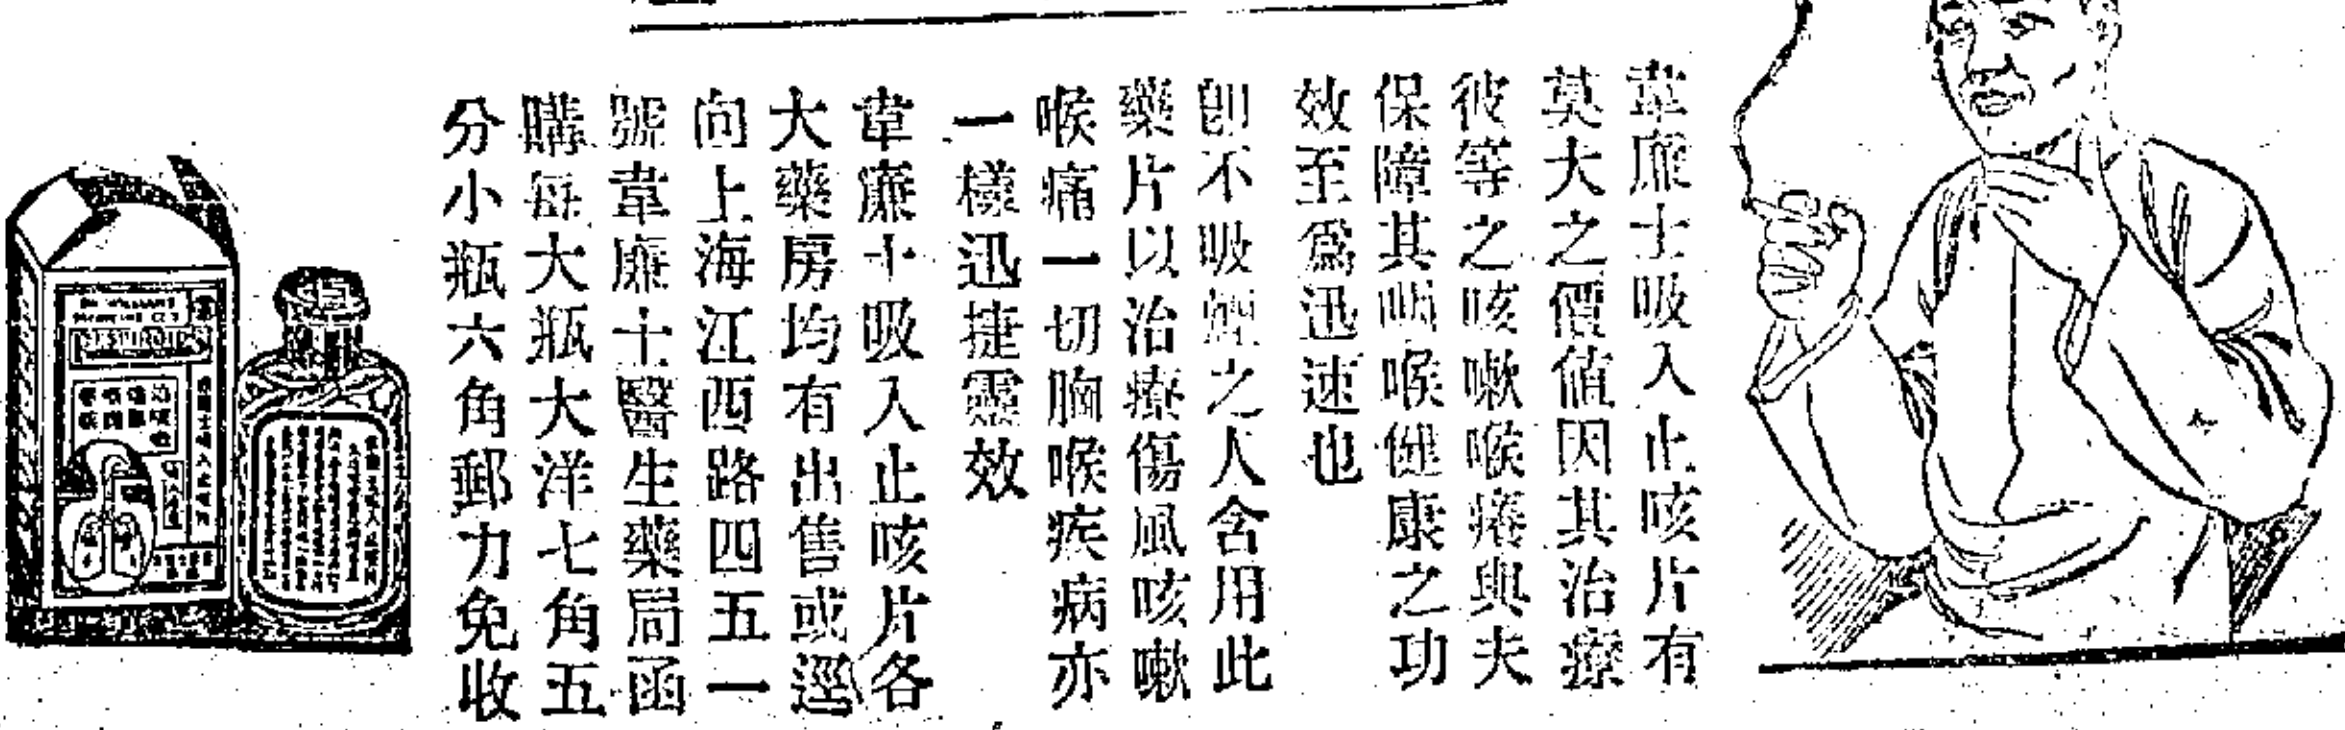 韋廉士吸入止咳片有
莫大之價値因其治療
彼等之咳嗽喉癢與夫
保障其咽喉健康之功
效至爲迅速也
卽不吸煙之人含用此
藥片以治療傷風咳嗽
喉痛一切胸喉疾病亦
一樣迅捷靈效
韋廉士吸入止咳片各
大藥房均有出售或逕
向上海江西路四五一
號韋廉士醫生藥局函
購每大瓶大洋七角五
分小瓶六角郵力免收
DR WILLIAMS